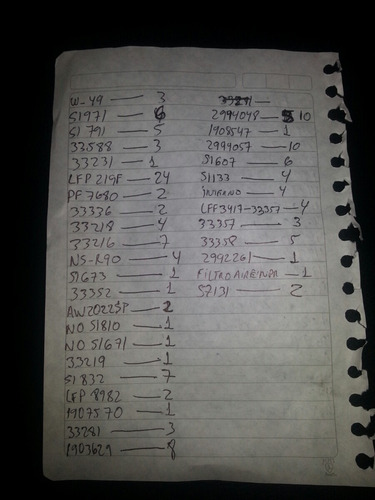 W-49 — 3
51971 — 6
51791 — 5
33588 — 3
33231 — 1
LFP 219F — 24
PF 7680 — 2
33336 — 2
33218 — 4
33216 — 7
NS-R90 — 4
51673 — 1
33352 — 1
AW20223P — 2
NO 51810 — 1
NO 51671 — 1
33219 — 1
51832 — 7
LFP 8982 — 2
1907570 — 1
33281 — 3
1903629 — 8
2994048 — 10
1908547 — 1
2994057 — 10
51607 — 6
51133 — 4
INTERNO — 4
LFF3417-33357 — 4
33357 — 3
33358 — 5
2992261 — 1
FILTRO AIRE — 1
57131 — 2